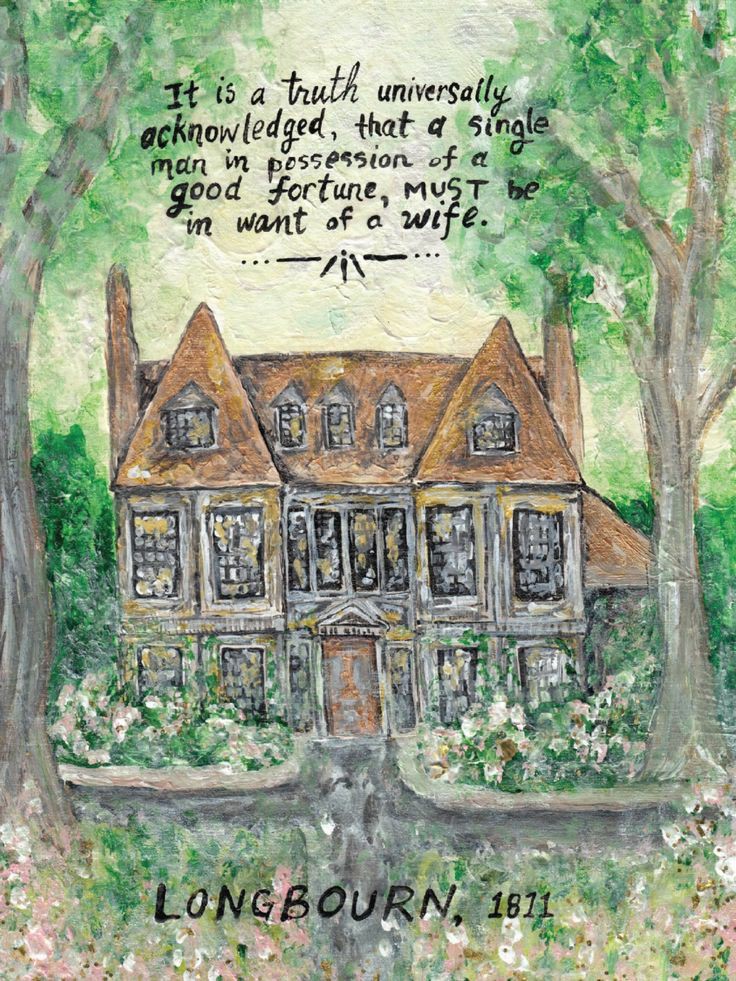 It is a truth universally
acknowledged, that a single
man in possession of a
good fortune, MUST be
in want of a wife.
LONGBOURN, 1811